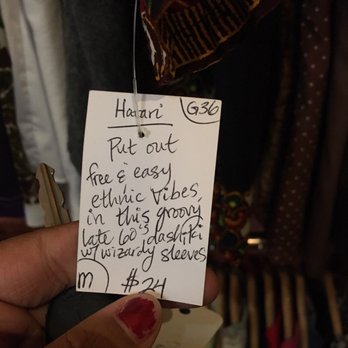 Hatari G36
Put out
free & easy
ethnic vibes,
in this groovy
late 60's dashiki
w/ wizardy sleeves
m $24